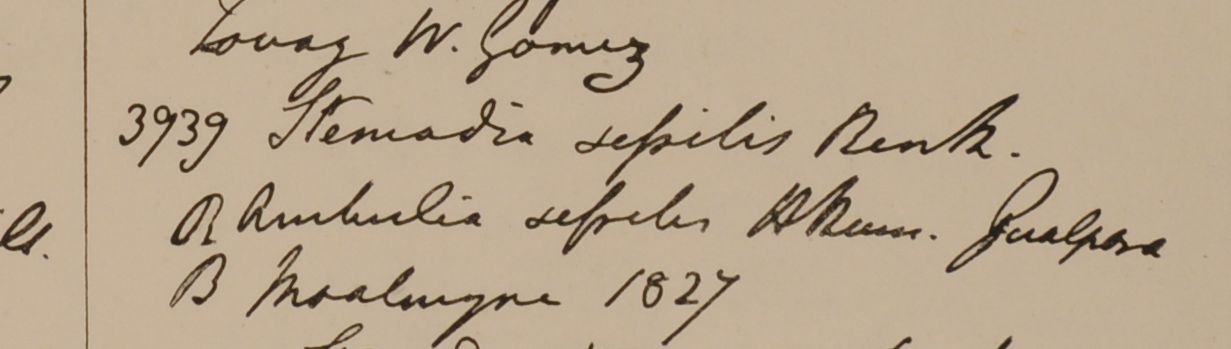 Tovay W. Gomez
3939 Stemodia sessilis Benth.
a Ambulia sessilis H Baum. Gualpara
B Moalmyne 1827